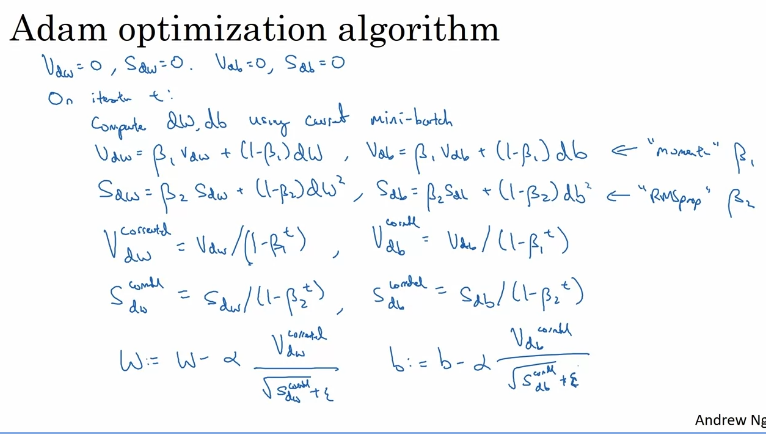 Adam optimization algorithm
V_dw = 0, S_dw = 0. V_db = 0, S_db = 0
On iteration t:
Compute dW, db using current mini-batch
V_dw = β₁ V_dw + (1-β₁) dW, V_db = β₁ V_db + (1-β₁) db ← "momentum" β₁
S_dw = β₂ S_dw + (1-β₂) dW², S_db = β₂ S_db + (1-β₂) db² ← "RMSprop" β₂
V_dw^corrected = V_dw/(1-β₁^t), V_db^corrected = V_db/(1-β₁^t)
S_dw^corrected = S_dw/(1-β₂^t), S_db^corrected = S_db/(1-β₂^t)
W := W - α V_dw^corrected / (√S_dw^corrected + ε) b := b - α V_db^corrected / (√S_db^corrected + ε)
Andrew Ng